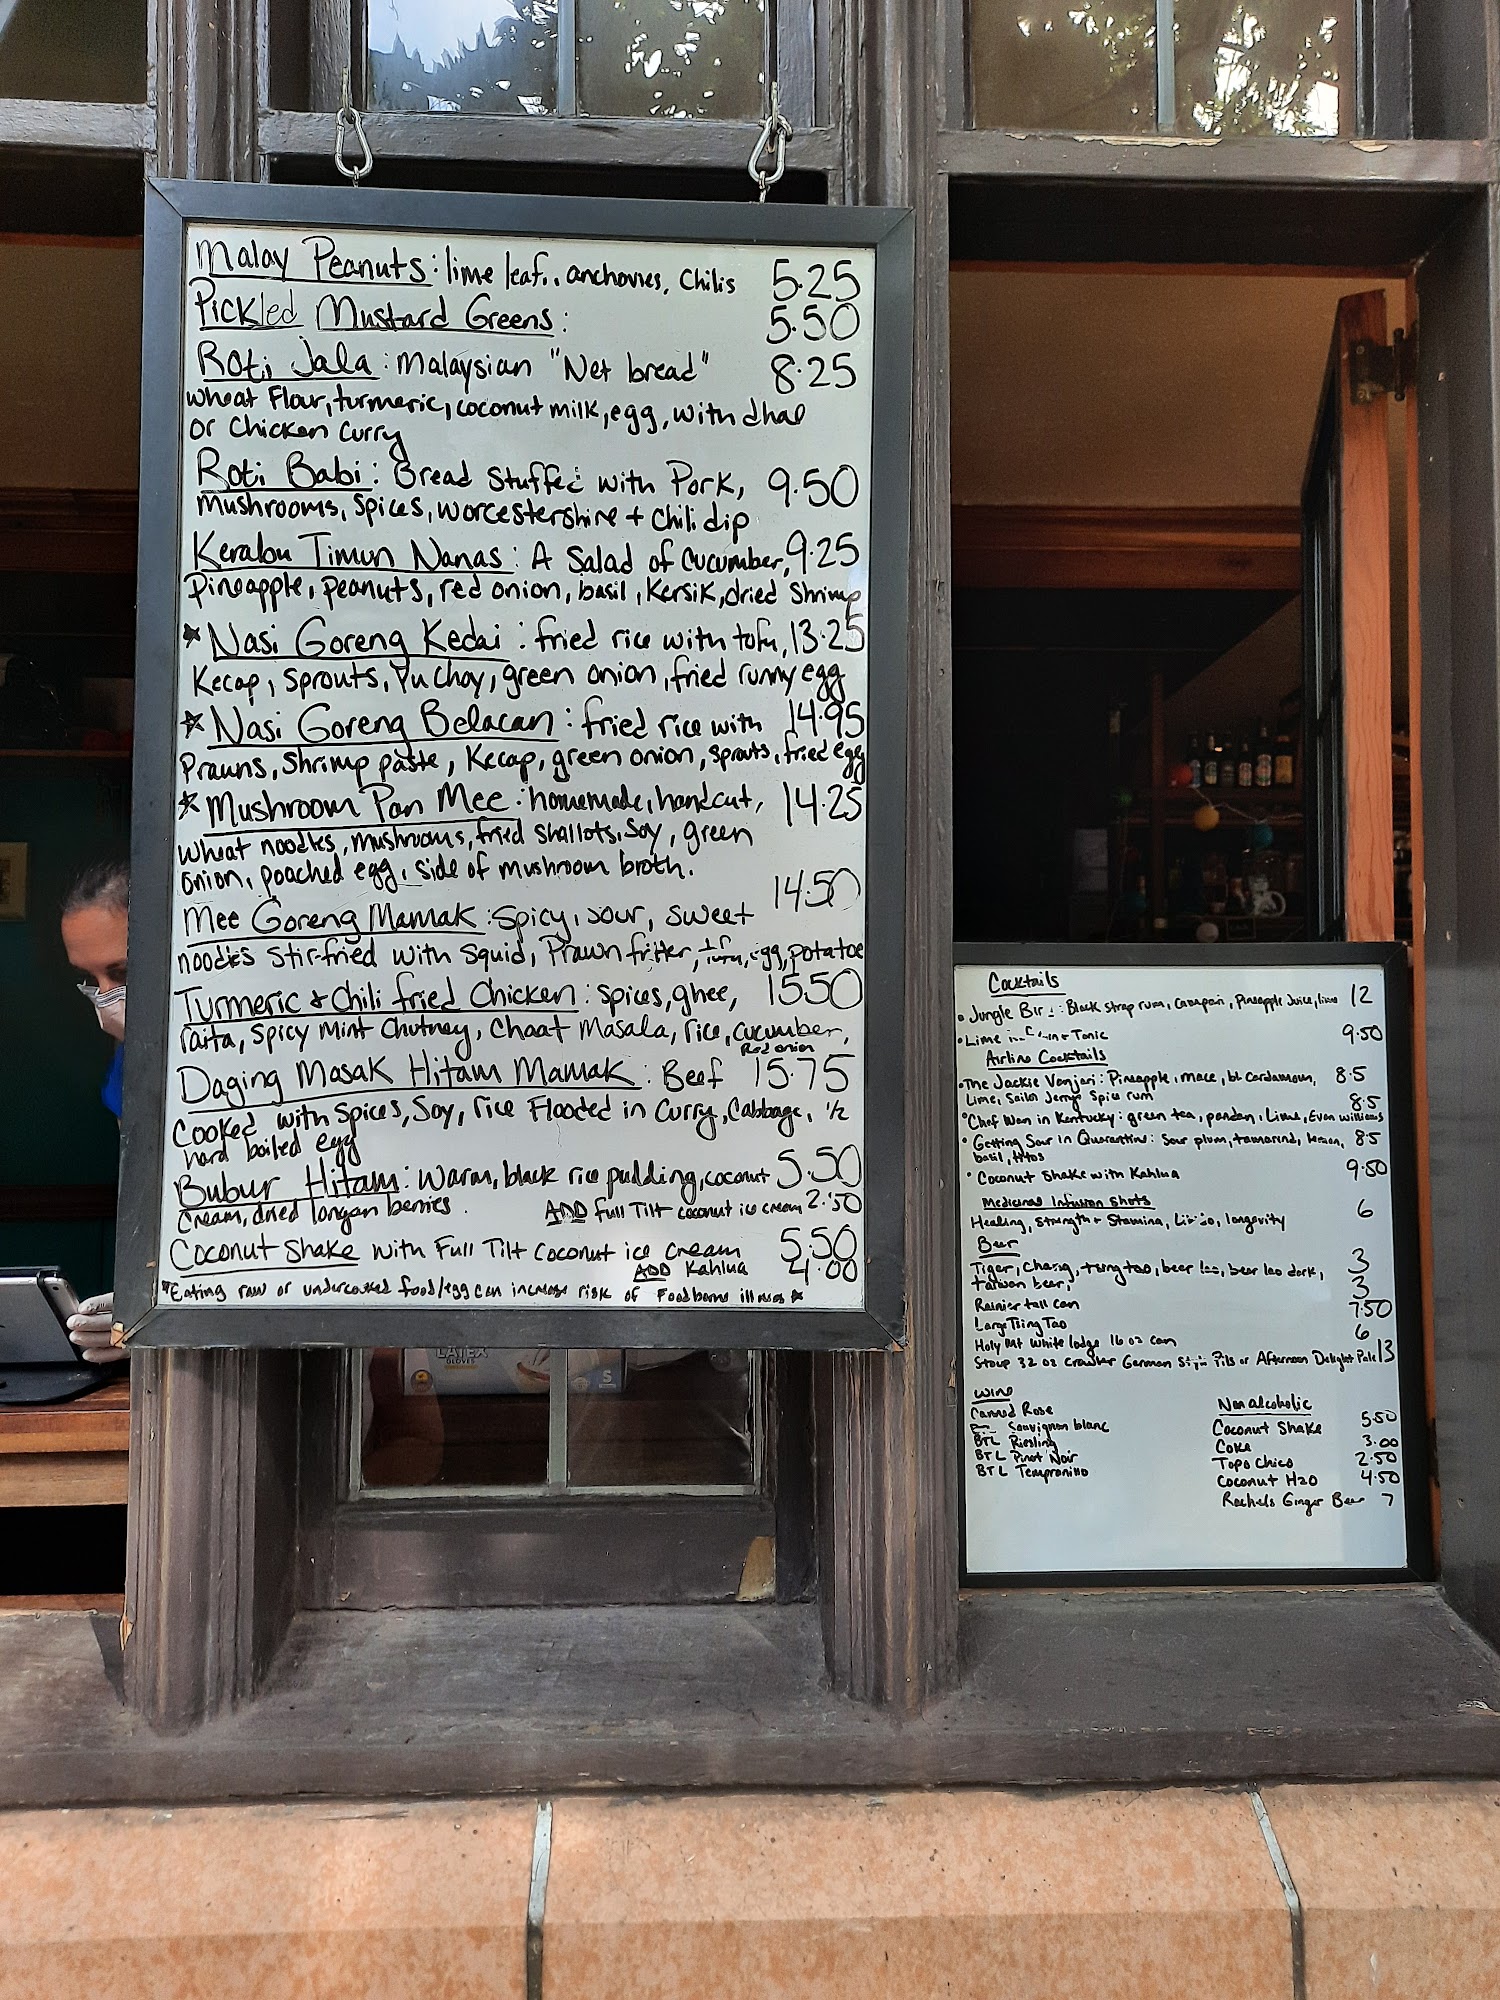 Malay Peanuts: lime leaf, anchovies, Chilis 5.25
Pickled Mustard Greens: 5.50
Roti Jala: Malaysian "Net bread" 8.25
Wheat Flour, turmeric, coconut milk, egg, with dhal
or Chicken Curry
Roti Babi: Bread Stuffed with Pork, 9.50
Mushrooms, Spices, Worcestershire + Chili dip
Kerabu Timun Nanas: A Salad of Cucumber, 9.25
Pineapple, peanuts, red onion, basil, Kersik, dried Shrimp
* Nasi Goreng Kedai: fried rice with tofu, 13.25
Kecap, Sprouts, Yu Choy, green onion, fried runny egg
* Nasi Goreng Belacan: fried rice with 14.95
Prawns, Shrimp paste, Kecap, green onion, sprouts, fried egg
* Mushroom Pan Mee: homemade, handcut, 14.25
Wheat noodles, mushrooms, fried Shallots, Soy, green
Onion, poached egg, side of mushroom broth.
Mee Goreng Mamak: Spicy, sour, sweet 14.50
noodles Stir-fried with Squid, Prawn fritter, egg, potatoe
Turmeric & Chili fried Chicken: spices, ghee, 15.50
raita, Spicy Mint Chutney, Chaat Masala, rice, cucumber,
Red onion
Daging Masak Hitam Mamak: Beef 15.75
Cooked with Spices, Soy, rice Flooded in Curry, Cabbage, 1/2
hard boiled egg
Bubur Hitam: Warm, black rice pudding, coconut 5.50
Cream, dried longan berries. ADD Full Tilt coconut ice cream 2.50
Coconut Shake with Full Tilt Coconut ice cream 5.50
ADD Kahlua 4.00
*Eating raw or undercooked food/egg can increase risk of Foodborne illness *
LATEX
GLOVES
S
Cocktails
• Jungle Bir : Black strap rum, Campari, Pineapple Juice, lime 12
• Lime Tonic 9.50
Airline Cocktails
• The Jackie Vanjari: Pineapple, mace, bl cardamom, 8.5
Lime, Sailor Jerry Spice rum
• Chef Wan in Kentucky: green tea, pandan, Lime, Evan williams 8.5
• Getting Sour in Quarantine: Sour plum, tamarind, lemon, 8.5
basil, titos
• Coconut Shake with Kahlua 9.50
Medicinal Infusion Shots
Healing, Strength + Stamina, Libido, longevity 6
Beer
Tiger, Chang, tsing tao, beer lao, beer lao dark, 3
taiwan beer,
Rainier tall can 3
Large Tsing Tao 7.50
Holy Mt White lodge 16 oz can 6
Stoup 32 oz Crowler German Pils or Afternoon Delight Pale 13
Wine
Canned Rose
Sauvignon blanc
BTL Riesling
BTL Pinot Noir
BTL Tempranillo
Non alcoholic
Coconut Shake 5.50
Coke 3.00
Topo Chico 2.50
Coconut H2O 4.50
Rachels Ginger Beer 7